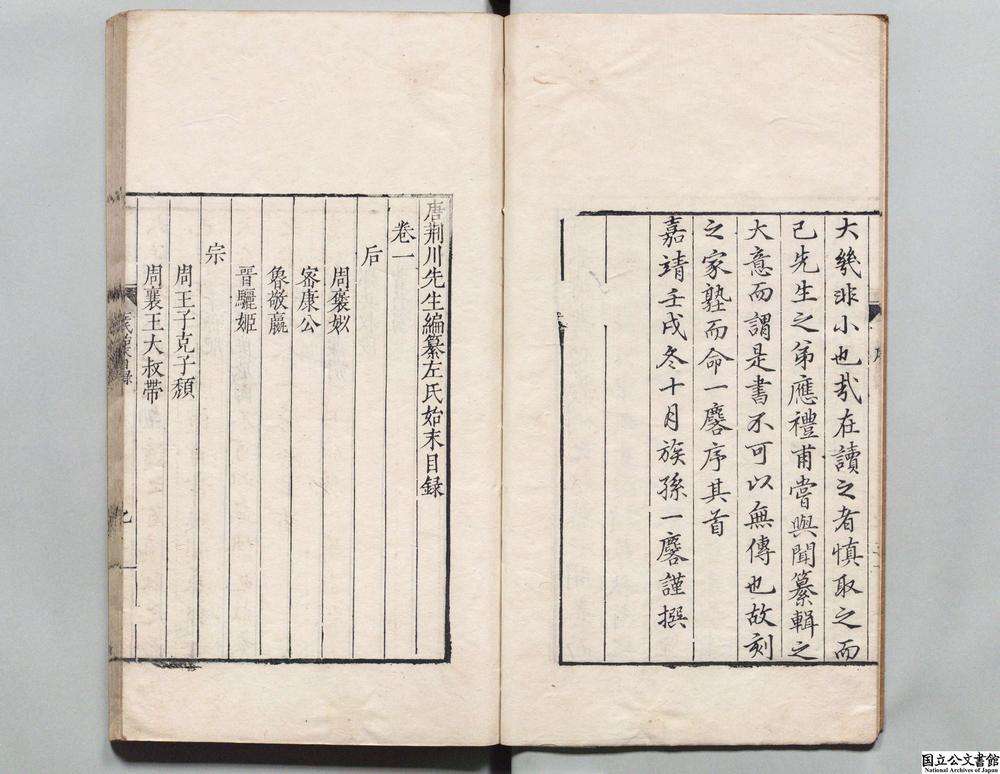 大幾非小也哉在讀之者慎取之而
已先生之弟應禮甫嘗與聞纂輯之
大意而謂是書不可以無傳也故刻
之家塾而命一麐序其首
嘉靖壬戌冬十月族孫一麐謹撰
唐荊川先生編纂左氏始末目録
卷一
后
周褒姒
密康公
魯敬嬴
晉驪姬
宗
周王子克子頽
周襄王大叔帶
国立公文書館
National Archives of Japan